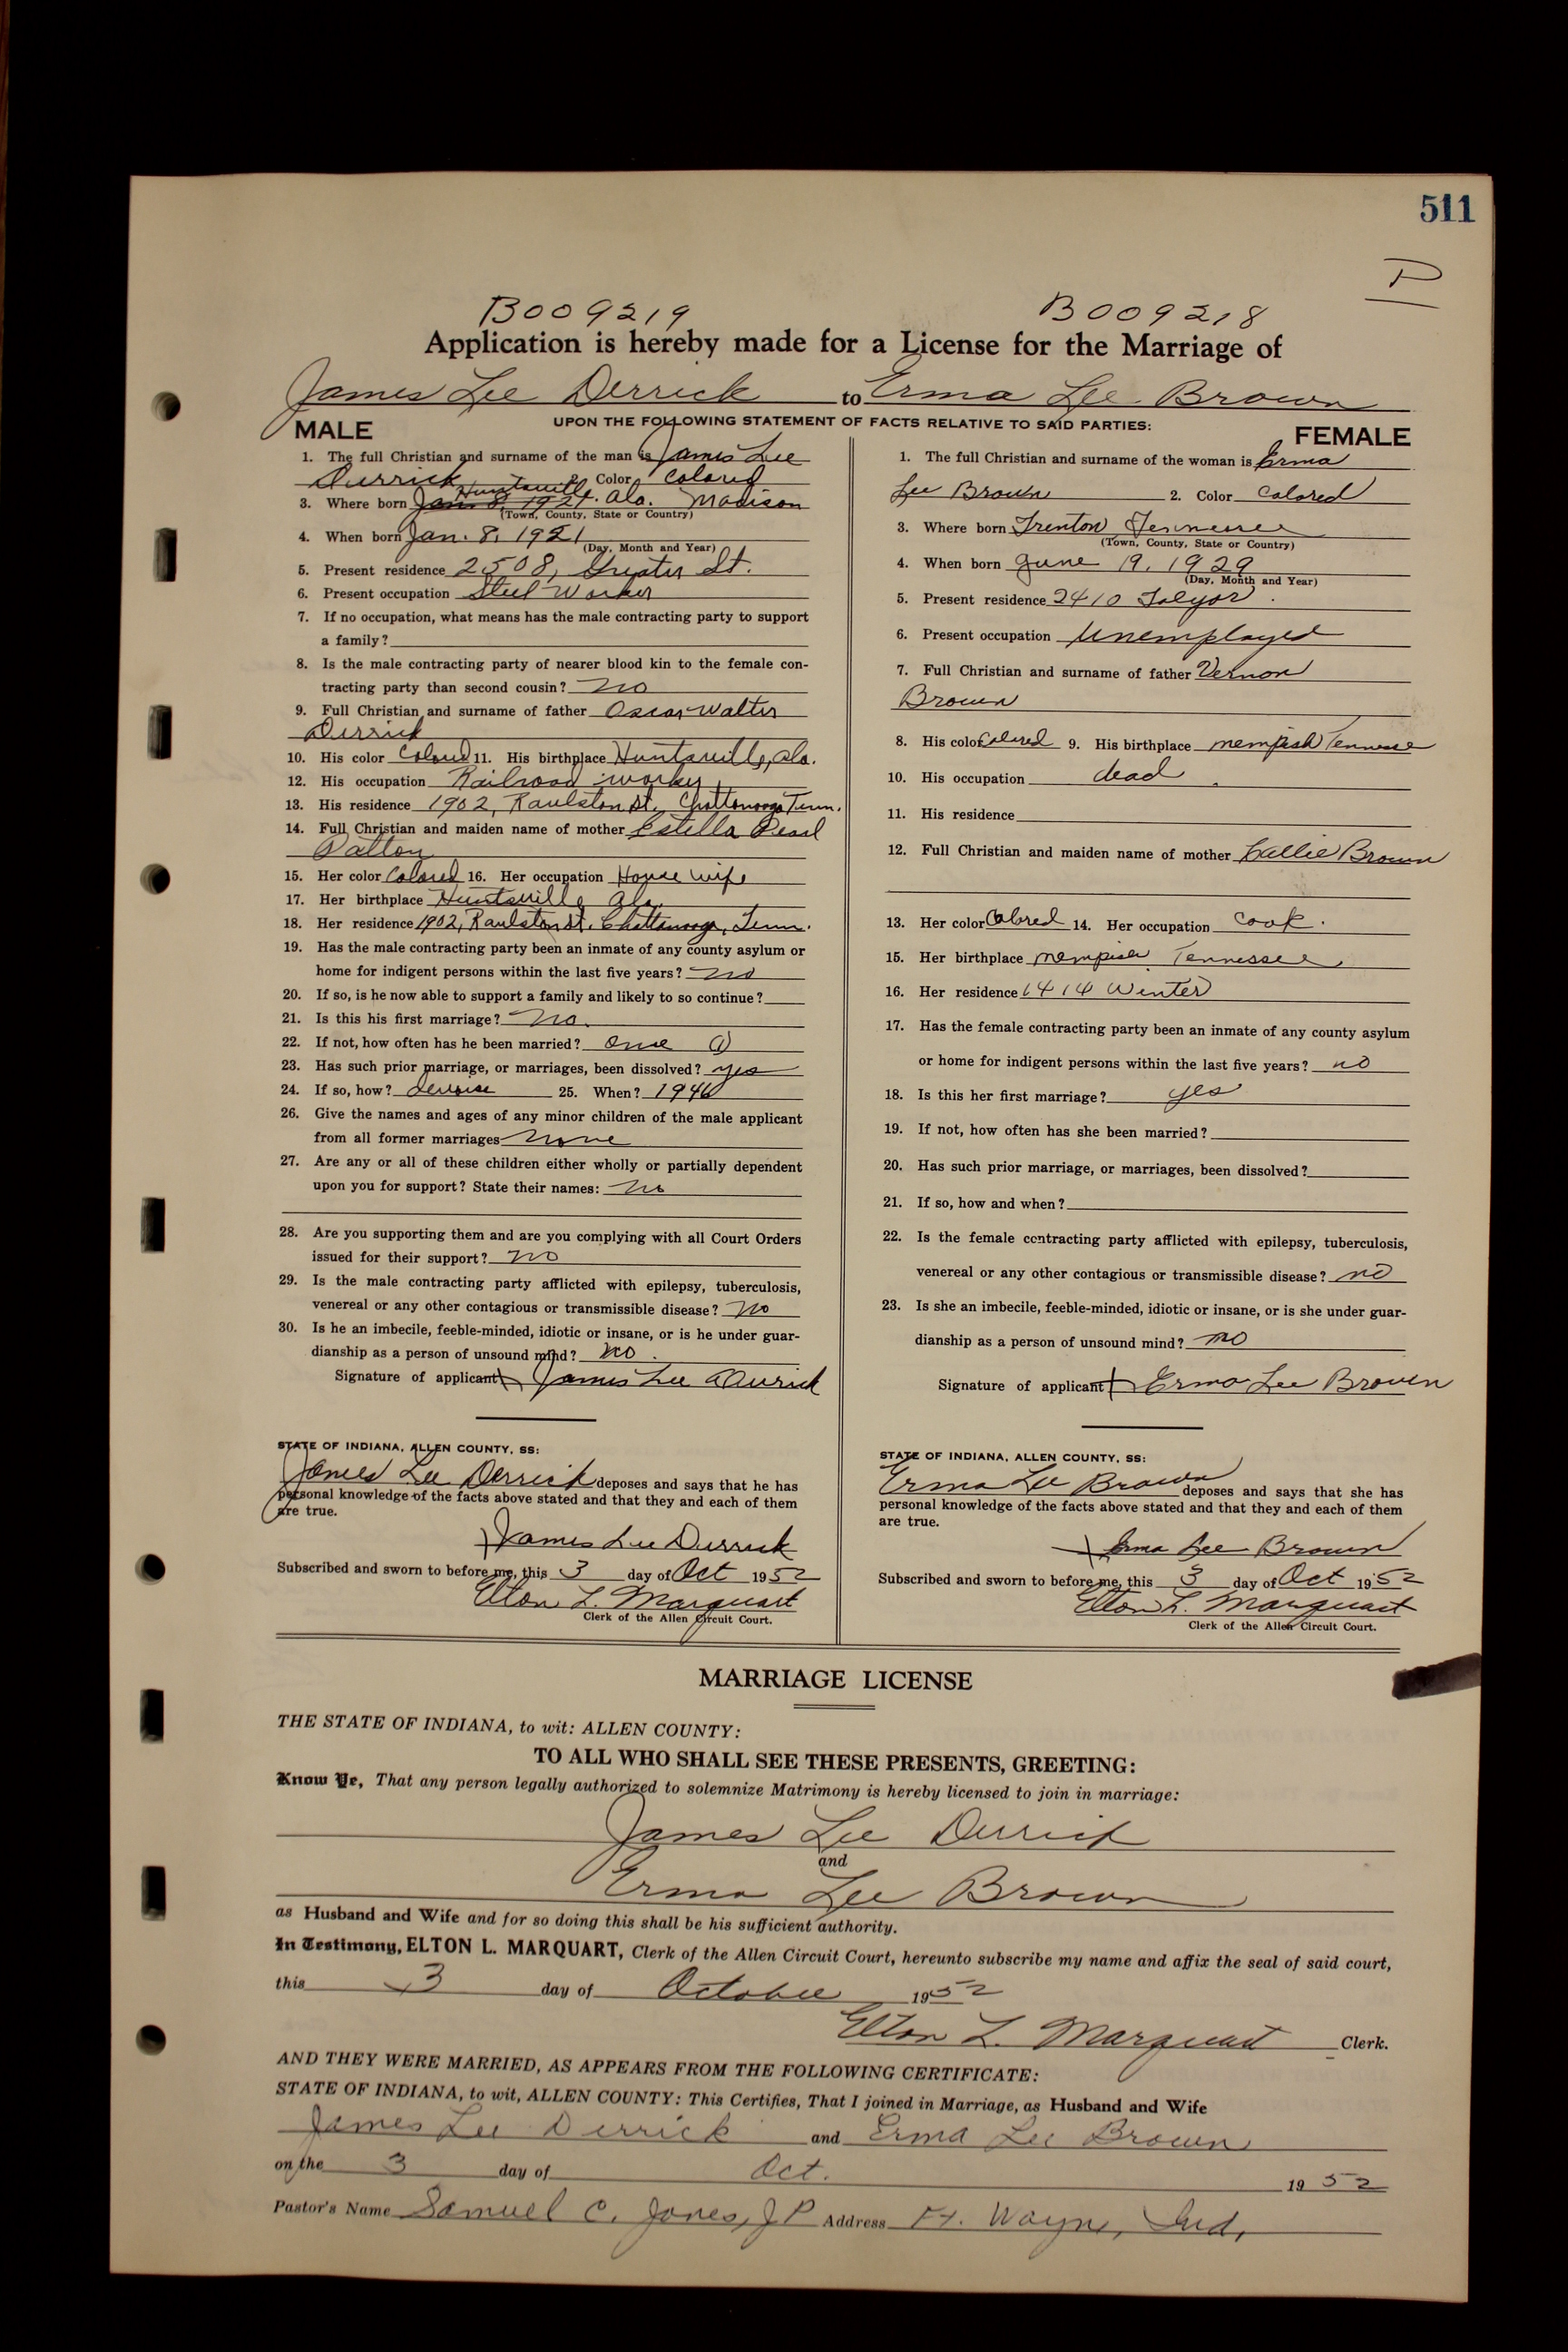 511
P
B009219 B009218
Application is hereby made for a License for the Marriage of
James Lee Derrick to Erma Lee Brown
UPON THE FOLLOWING STATEMENT OF FACTS RELATIVE TO SAID PARTIES:
MALE
1. The full Christian and surname of the man is James Lee
Derrick 2. Color Colored
3. Where born Jan. 8, 1921 Huntsville, Ala. Madison
(Town, County, State or Country)
4. When born Jan. 8, 1921
(Day, Month and Year)
5. Present residence 2508, St.
6. Present occupation Steel Worker
7. If no occupation, what means has the male contracting party to support
a family?
8. Is the male contracting party of nearer blood kin to the female con-
tracting party than second cousin? no
9. Full Christian and surname of father Oscar Walter
Derrick
10. His color Colored 11. His birthplace Huntsville, Ala.
12. His occupation Railroad worker
13. His residence 1902, Raulston St. Chattanooga Tenn.
14. Full Christian and maiden name of mother Estella Pearl
15. Her color Colored 16. Her occupation House wife
17. Her birthplace Huntsville Ala.
18. Her residence 1902, Raulston St. Chattanooga, Tenn.
19. Has the male contracting party been an inmate of any county asylum or
home for indigent persons within the last five years? no
20. If so, is he now able to support a family and likely to so continue?
21. Is this his first marriage? No.
22. If not, how often has he been married? One (1)
23. Has such prior marriage, or marriages, been dissolved? yes
24. If so, how? 25. When? 1946
26. Give the names and ages of any minor children of the male applicant
from all former marriages none
27. Are any or all of these children either wholly or partially dependent
upon you for support? State their names: no
28. Are you supporting them and are you complying with all Court Orders
issued for their support? no
29. Is the male contracting party afflicted with epilepsy, tuberculosis,
venereal or any other contagious or transmissible disease? no
30. Is he an imbecile, feeble-minded, idiotic or insane, or is he under guar-
dianship as a person of unsound mind? no.
Signature of applicant James Lee Derrick
STATE OF INDIANA, ALLEN COUNTY, SS:
James Lee Derrick deposes and says that he has
personal knowledge of the facts above stated and that they and each of them
are true.
James Lee Derrick
Subscribed and sworn to before me, this 3 day of Oct 1952
Elton L. Marquart
Clerk of the Allen Circuit Court.
FEMALE
1. The full Christian and surname of the woman is Erma
Lee Brown 2. Color Colored
3. Where born Trenton Tennessee
(Town, County, State or Country)
4. When born June 19, 1929
(Day, Month and Year)
5. Present residence 2410
6. Present occupation Unemployed
7. Full Christian and surname of father Vernon
Brown
8. His color Colored 9. His birthplace Tennesse
10. His occupation dead
11. His residence
12. Full Christian and maiden name of mother Callie Brown
13. Her color Colored 14. Her occupation cook.
15. Her birthplace Tennessee
16. Her residence 1414 Winter
17. Has the female contracting party been an inmate of any county asylum
or home for indigent persons within the last five years? no
18. Is this her first marriage? yes
19. If not, how often has she been married?
20. Has such prior marriage, or marriages, been dissolved?
21. If so, how and when?
22. Is the female contracting party afflicted with epilepsy, tuberculosis,
venereal or any other contagious or transmissible disease? no
23. Is she an imbecile, feeble-minded, idiotic or insane, or is she under guar-
dianship as a person of unsound mind? no
Signature of applicant Erma Lee Brown
STATE OF INDIANA, ALLEN COUNTY, SS:
Erma Lee Brown deposes and says that she has
personal knowledge of the facts above stated and that they and each of them
are true.
Erma Lee Brown
Subscribed and sworn to before me, this 3 day of Oct 1952
Elton L. Marquart
Clerk of the Allen Circuit Court.
MARRIAGE LICENSE
THE STATE OF INDIANA, to wit: ALLEN COUNTY:
TO ALL WHO SHALL SEE THESE PRESENTS, GREETING:
Know Ye, That any person legally authorized to solemnize Matrimony is hereby licensed to join in marriage:
James Lee Derrick
and
Erma Lee Brown
as Husband and Wife and for so doing this shall be his sufficient authority.
In Testimony, ELTON L. MARQUART, Clerk of the Allen Circuit Court, hereunto subscribe my name and affix the seal of said court,
this 3 day of October 1952
Elton L. Marquart Clerk.
AND THEY WERE MARRIED, AS APPEARS FROM THE FOLLOWING CERTIFICATE:
STATE OF INDIANA, to wit, ALLEN COUNTY: This Certifies, That I joined in Marriage, as Husband and Wife
James Lee Derrick and Erma Lee Brown
on the 3 day of Oct. 1952
Pastor's Name Samuel C. Jones, JP Address Ft. Wayne, Ind.